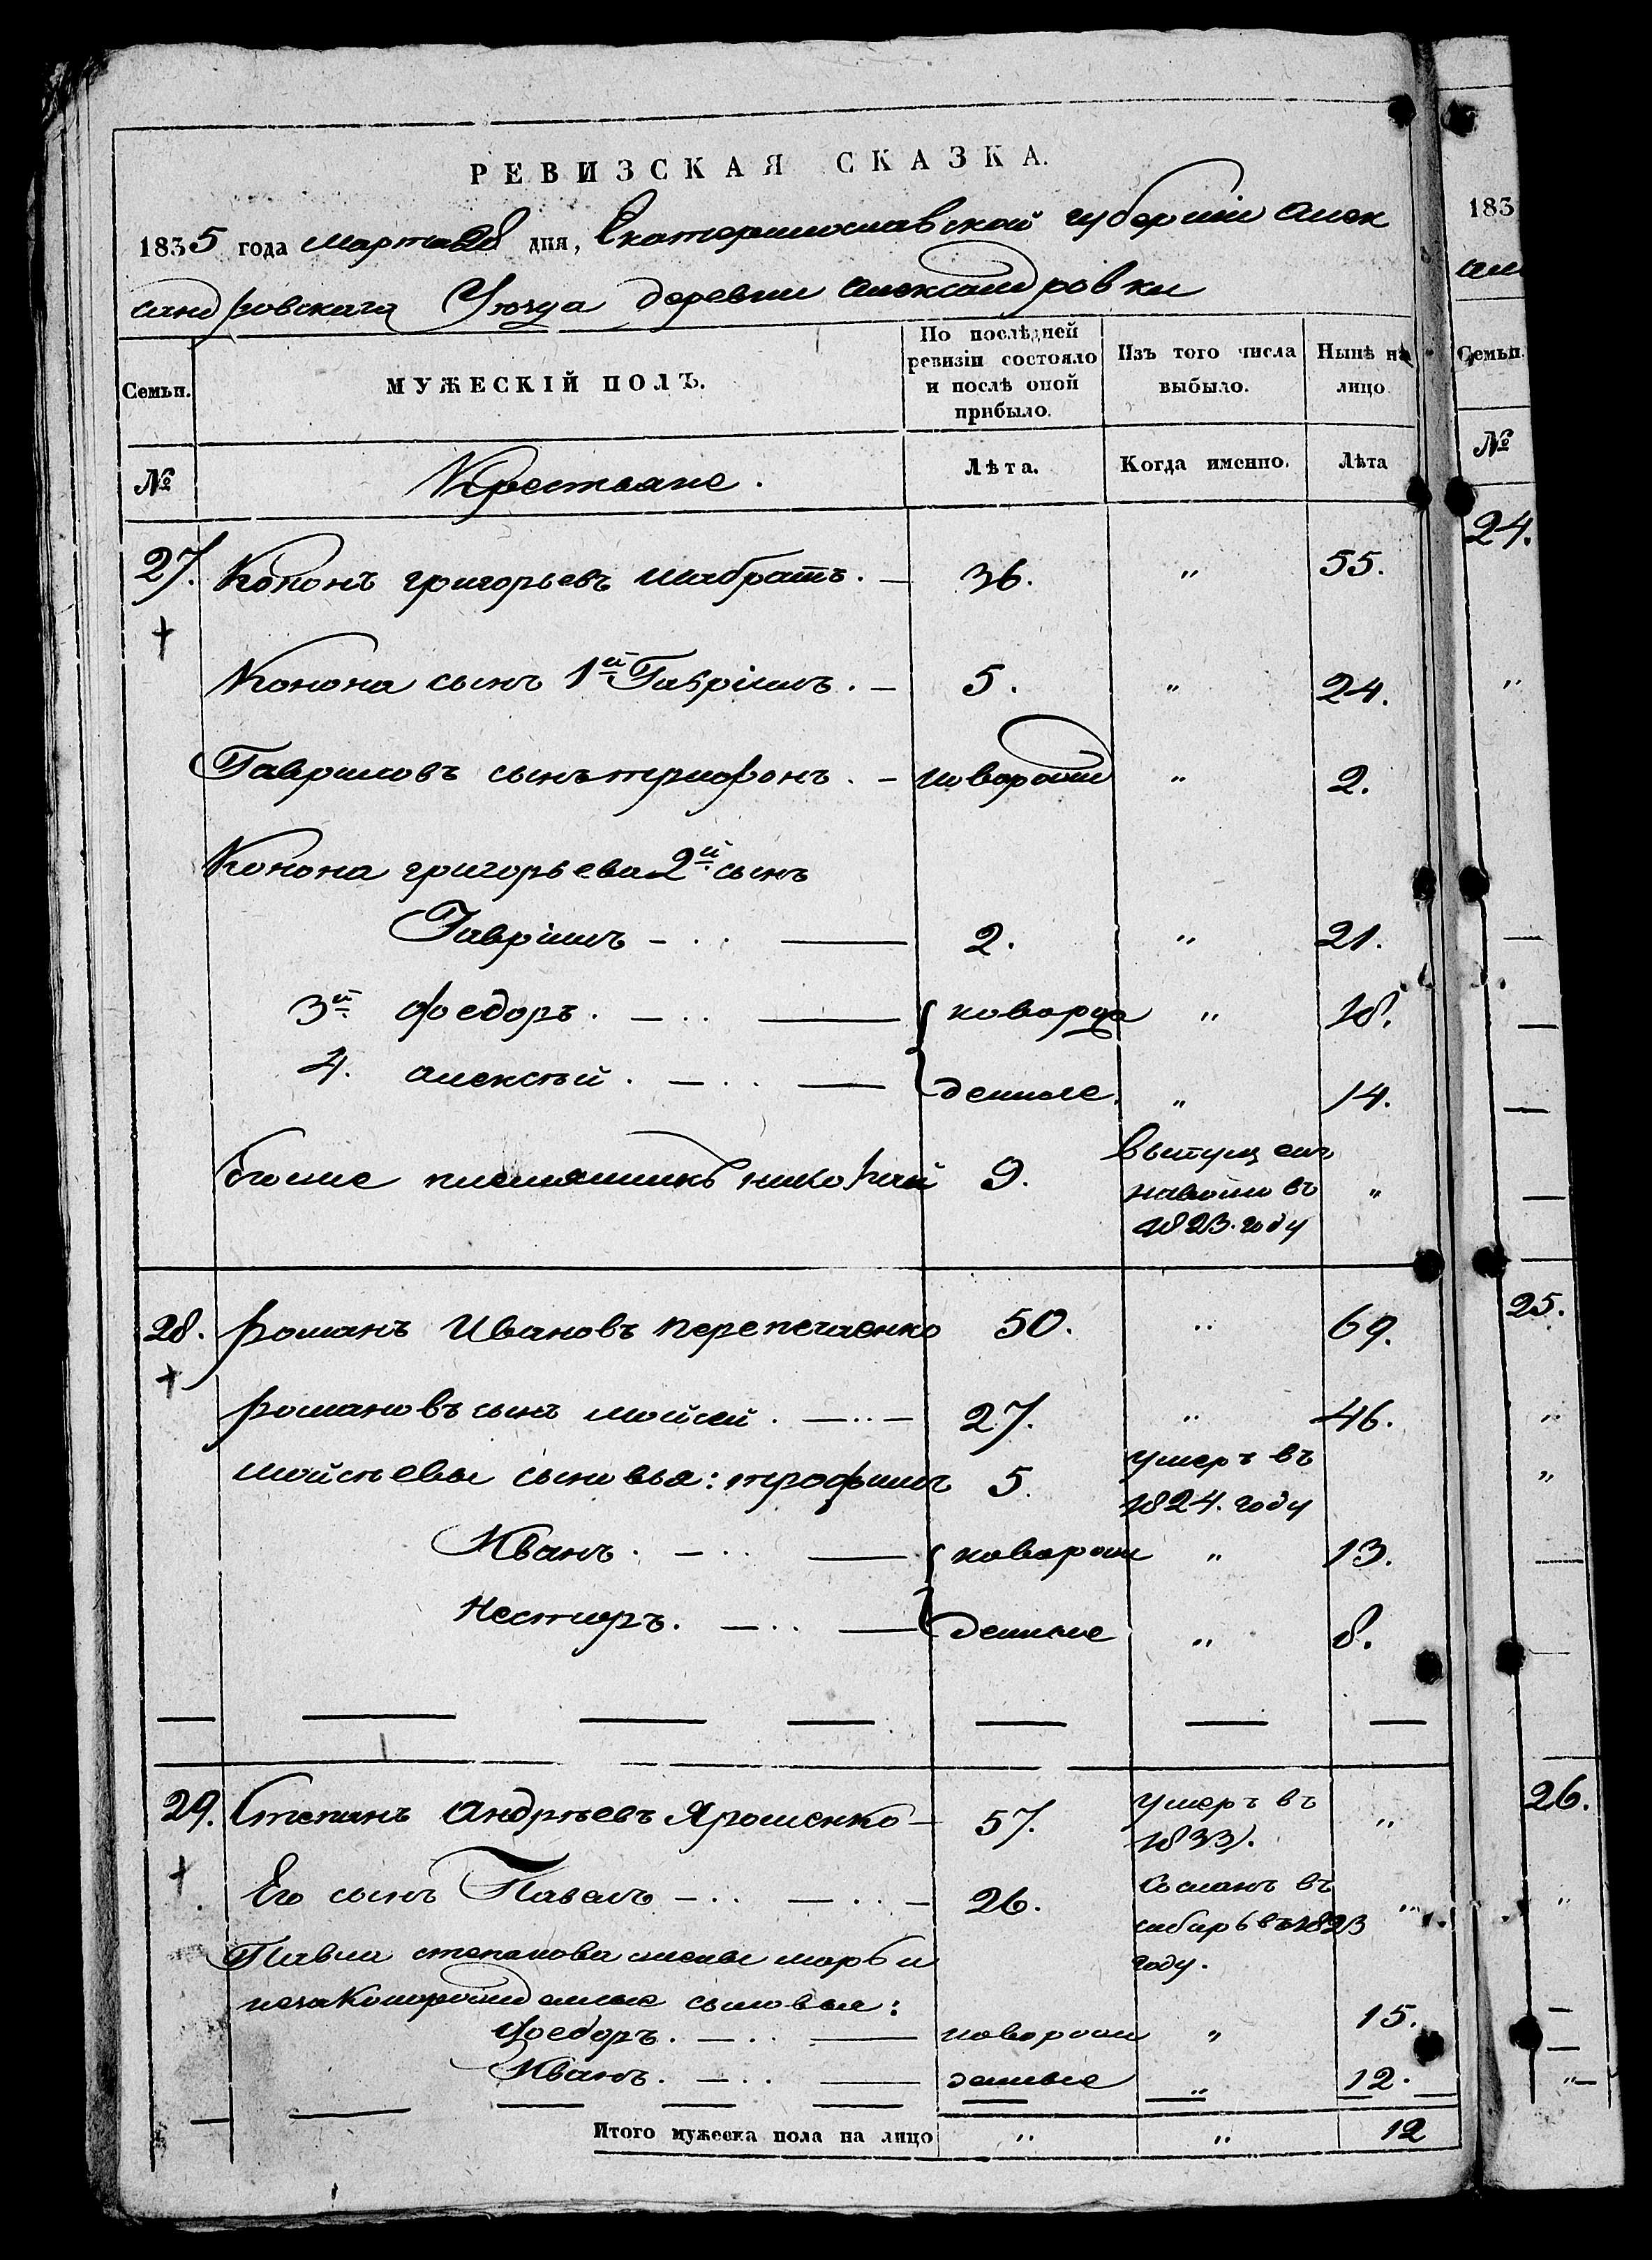 РЕВИЗСКАЯ СКАЗКА.
1835 года марта 28 дня, Екатеринославской губерніи Алек
сандровскаго Уѣзда деревни Александровки
Семьи.
МУЖЕСКІЙ ПОЛЪ.
По послѣдней
ревизіи состояло
и послѣ оной
прибыло.
Изъ того числа
выбыло.
Нынѣ на
лицо.
№
Крестьяне.
Лѣта.
Когда именно.
Лѣта
27. Кононъ григорьевъ шабратъ. — 36. " 55.
Конона сынъ 1й Гавріилъ. — 5. " 24.
Гавриловъ сынъ трифонъ. — новорожд " 2.
Конона григорьева 2й сынъ
Гавріилъ — . . — 2. " 21.
3й федоръ. — . . — новорож " 18.
4. алексѣй. — . . — денные. " 14.
николай 9. выпущенъ
наволю въ "
1823. году
28. Романъ Ивановъ перепечаенко 50. " 69.
Романовъ сынъ мойсей. — . . — 27. " 46.
Мойсѣевы сыновья: трофимъ 5. умеръ въ
1824. году
Иванъ. — . . — новорож " 13.
Несторъ. — . . — денные " 8.
29. Степанъ Андрѣевъ Ярошенко — 57. умеръ въ "
1833.
Его сынъ Павелъ — . . — . . — 26. Сосланъ въ "
сибирь въ 1823
году.
Павла степанова жены марьи
незаконорожденные сыновья:
Федоръ. — . . — новорож " 15.
Иванъ. — . . — денные " 12.
Итого мужеска пола на лицо " " 12
183
але
Семьи.
№
24.
25.
26.